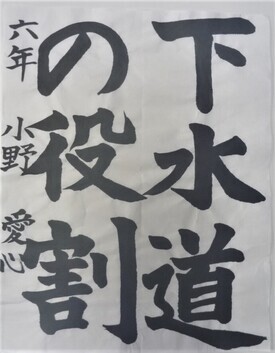 下水道
の役割
六年 小野 愛心